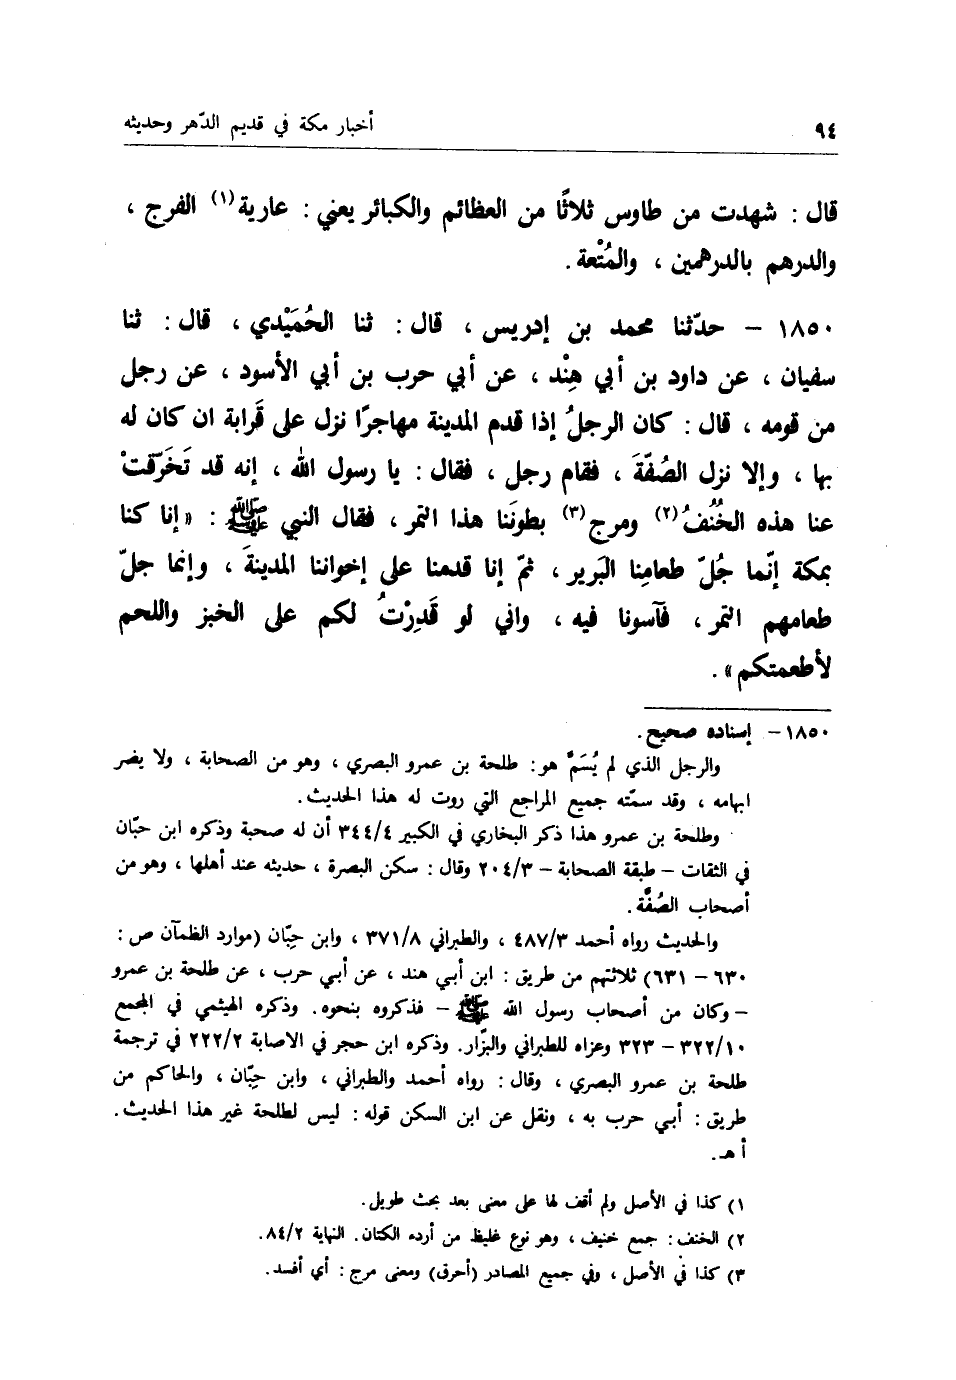 ٩٤
أخبار مكة في قديم الدّهر وحديثه
قال : شهدت من طاوس ثلاثًا من العظائم والكبائر يعني : عارية(١) الفرج ،
والدرهم بالدرهمين ، والمُتْعة .
١٨٥٠ – حدّثنا محمد بن إدريس ، قال : ثنا الحُمَيْدي ، قال : ثنا
سفيان ، عن داود بن أبي هِنْد ، عن أبي حرب بن أبي الأسود ، عن رجل
من قومه ، قال : كان الرجلُ إذا قدم المدينة مهاجرًا نزل على قَرابة ان كان له
بها ، وإلا نزل الصُفّةَ ، فقام رجل ، فقال : يا رسول الله ، إنه قد تَخَرّقتْ
عنا هذه الخُنُفُ(٢) ومرج(٣) بطونَنا هذا التمر ، فقال النبي ﷺ : « إنا كنا
بمكة إنّما جُلّ طعامِنا البَرير ، ثمّ إنا قدمنا على إخواننا المدينةَ ، وإنما جلّ
طعامهم التمر ، فآسونا فيه ، واني لو قَدِرْتُ لكم على الخبز واللحم
لأطعمتكم » .
١٨٥٠ – إسناده صحيح .
والرجل الذي لم يُسَمَّ هو : طلحة بن عمرو البصري ، وهو من الصحابة ، ولا يضر
ابهامه ، وقد سمّته جميع المراجع التي روت له هذا الحديث .
وطلحة بن عمرو هذا ذكر البخاري في الكبير ٣٤٤/٤ أن له صحبة وذكره ابن حبّان
في الثقات – طبقة الصحابة – ٢٠٤/٣ وقال : سكن البصرة ، حديثه عند أهلها ، وهو من
أصحاب الصُفَّة .
والحديث رواه أحمد ٤٨٧/٣ ، والطبراني ٣٧١/٨ ، وابن حِبّان (موارد الظمآن ص :
٦٣٠ – ٦٣١) ثلاثتهم من طريق : ابن أبي هند ، عن أبي حرب ، عن طلحة بن عمرو
– وكان من أصحاب رسول الله ﷺ – فذكروه بنحوه . وذكره الهيثمي في المجمع
٣٢٢/١٠ – ٣٢٣ وعزاه للطبراني والبزّار . وذكره ابن حجر في الاصابة ٢٢٢/٢ في ترجمة
طلحة بن عمرو البصري ، وقال : رواه أحمد والطبراني ، وابن حِبّان ، والحاكم من
طريق : أبي حرب به ، ونقل عن ابن السكن قوله : ليس لطلحة غير هذا الحديث .
أ هـ .
١) كذا في الأصل ولم أقف لها على معنى بعد بحث طويل .
٢) الخنف : جمع خنيف ، وهو نوع غليظ من أردء الكتان . النهاية ٨٤/٢ .
٣) كذا في الأصل ، وفي جميع المصادر (أحرق) ومعنى مرج : أي أفسد .